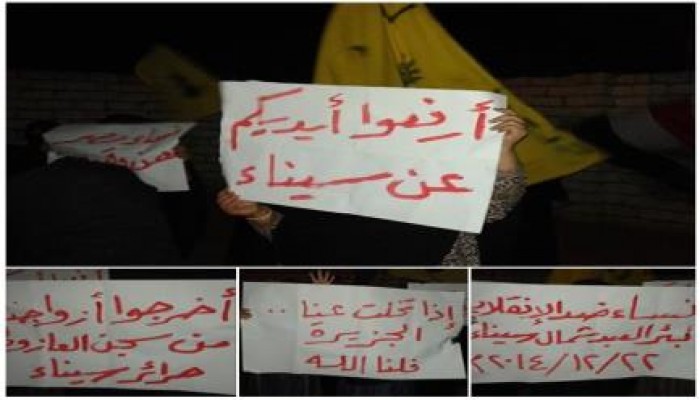 أرفعوا أيديكم
عن سيناء
أخرجوا أزواجهن
من سجن العازولي
حرائر سيناء
إذا تخلت عنا ..
الجزيرة
فلنا الله
نساء ضد الإنقلاب
بئر العبد شمال سيناء
٢٠١٤/١٢/٢٢